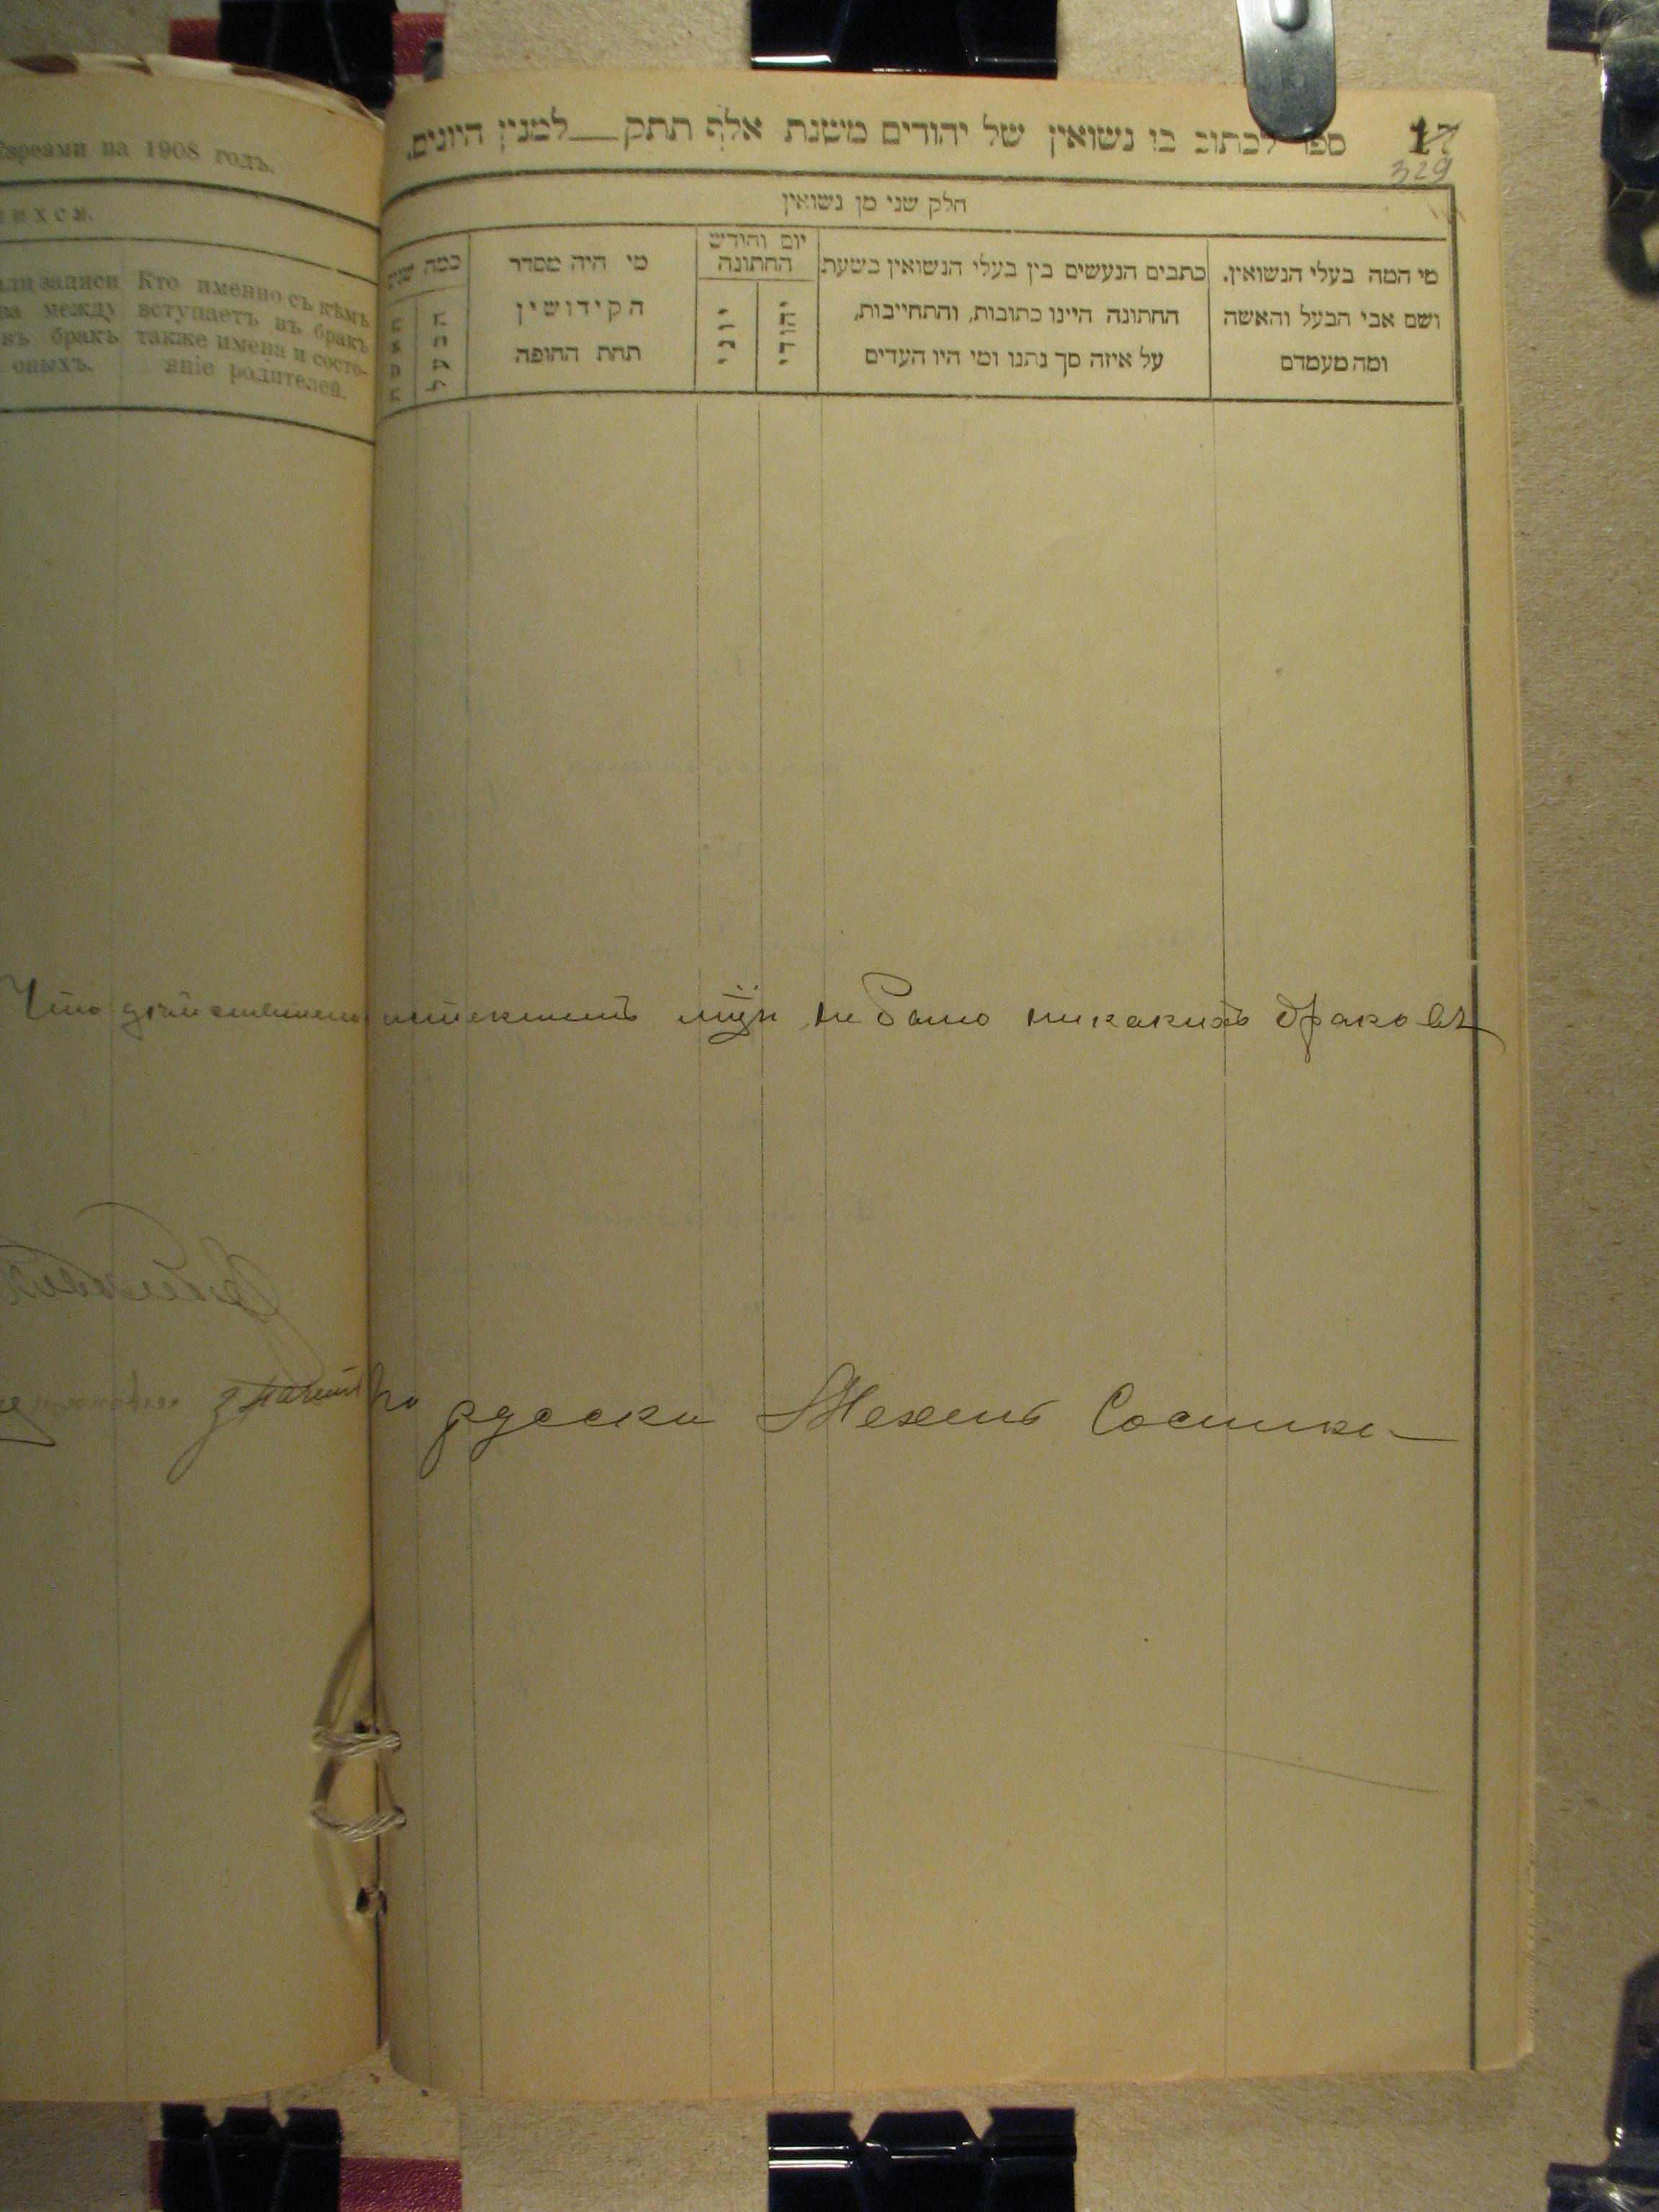 Евреями на 1908 годъ.
ихся.
или записи
ва между
въ бракъ
оныхъ.
Кто именно съ кѣмъ
вступаетъ въ бракъ
также имена и состо-
яніе родителей.
17
329
ספר לכתוב בו נשואין של יהודים משנת אלף תתק למנין היונים.
חלק שני מן נשואין
מי המה בעלי הנשואין.
ושם אבי הבעל והאשה
ומה מעמדם
כתבים הנעשים בין בעלי הנשואין בשעת
החתונה היינו כתובות, והתחייבות,
על איזה סך נתנו ומי היו העדים
יום וחודש
החתונה
יהודי
יוני
מי היה מסדר
הקידושין
תחת החופה
כמה שנים
הבעל
האשה
Что действительно не было никакихъ браковъ
по русски Мехель